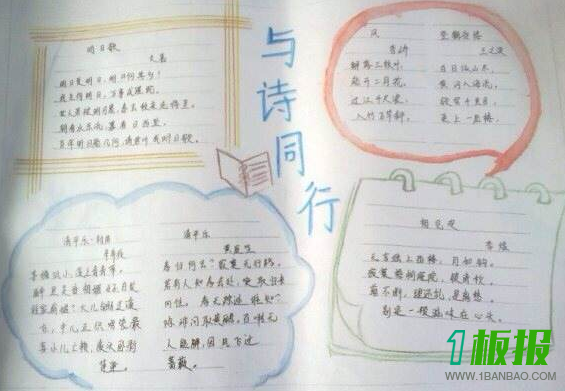 与诗同行
明日歌
文嘉
明日复明日，明日何其多！
我生待明日，万事成蹉跎。
世人若被明日累，春去秋来老将至。
朝看水东流，暮看日西坠。
百年明日能几何，请君听我明日歌。
风
李峤
解落三秋叶，
能开二月花。
过江千尺浪，
入竹万竿斜。
登鹳雀楼
王之涣
白日依山尽，
黄河入海流。
欲穷千里目，
更上一层楼。
清平乐·村居
辛弃疾
茅檐低小，溪上青青草。
醉里吴音相媚好，白发
谁家翁媪？大儿锄豆溪
东，中儿正织鸡笼。最
喜小儿亡赖，溪头卧剥
莲蓬。
清平乐
黄庭坚
春归何去？寂寞无行路。
若有人知春去处，唤取归来
同住。春无踪迹谁知？
除非问取黄鹂，百啭无
人能解，因风飞过
蔷薇。
相见欢
李煜
无言独上西楼，月如钩。
寂寞梧桐深院，锁清秋。
剪不断，理还乱，是离愁。
别是一般滋味在心头。
1板报
WWW.1BANBAO.COM